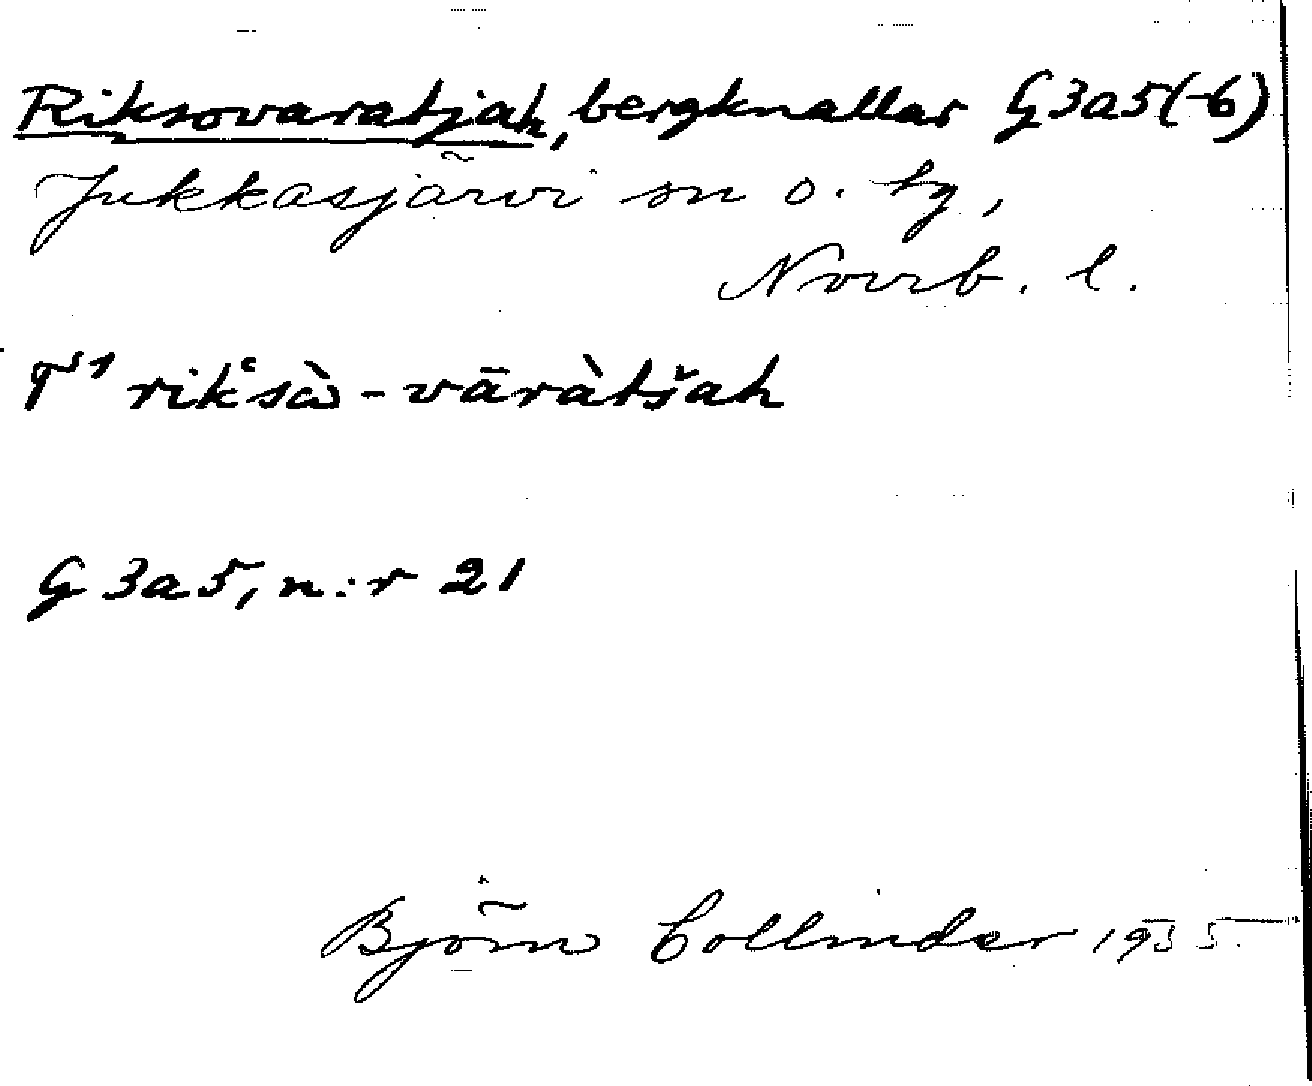 Riksovaratjah, bergknallar G3a5(-6)
Jukkasjärvi sn o. tg,
Norrb. l.
T¹ rik͑sὰ-vāràtšah
G3a5, n:r 21
Björn Collinder 1935.